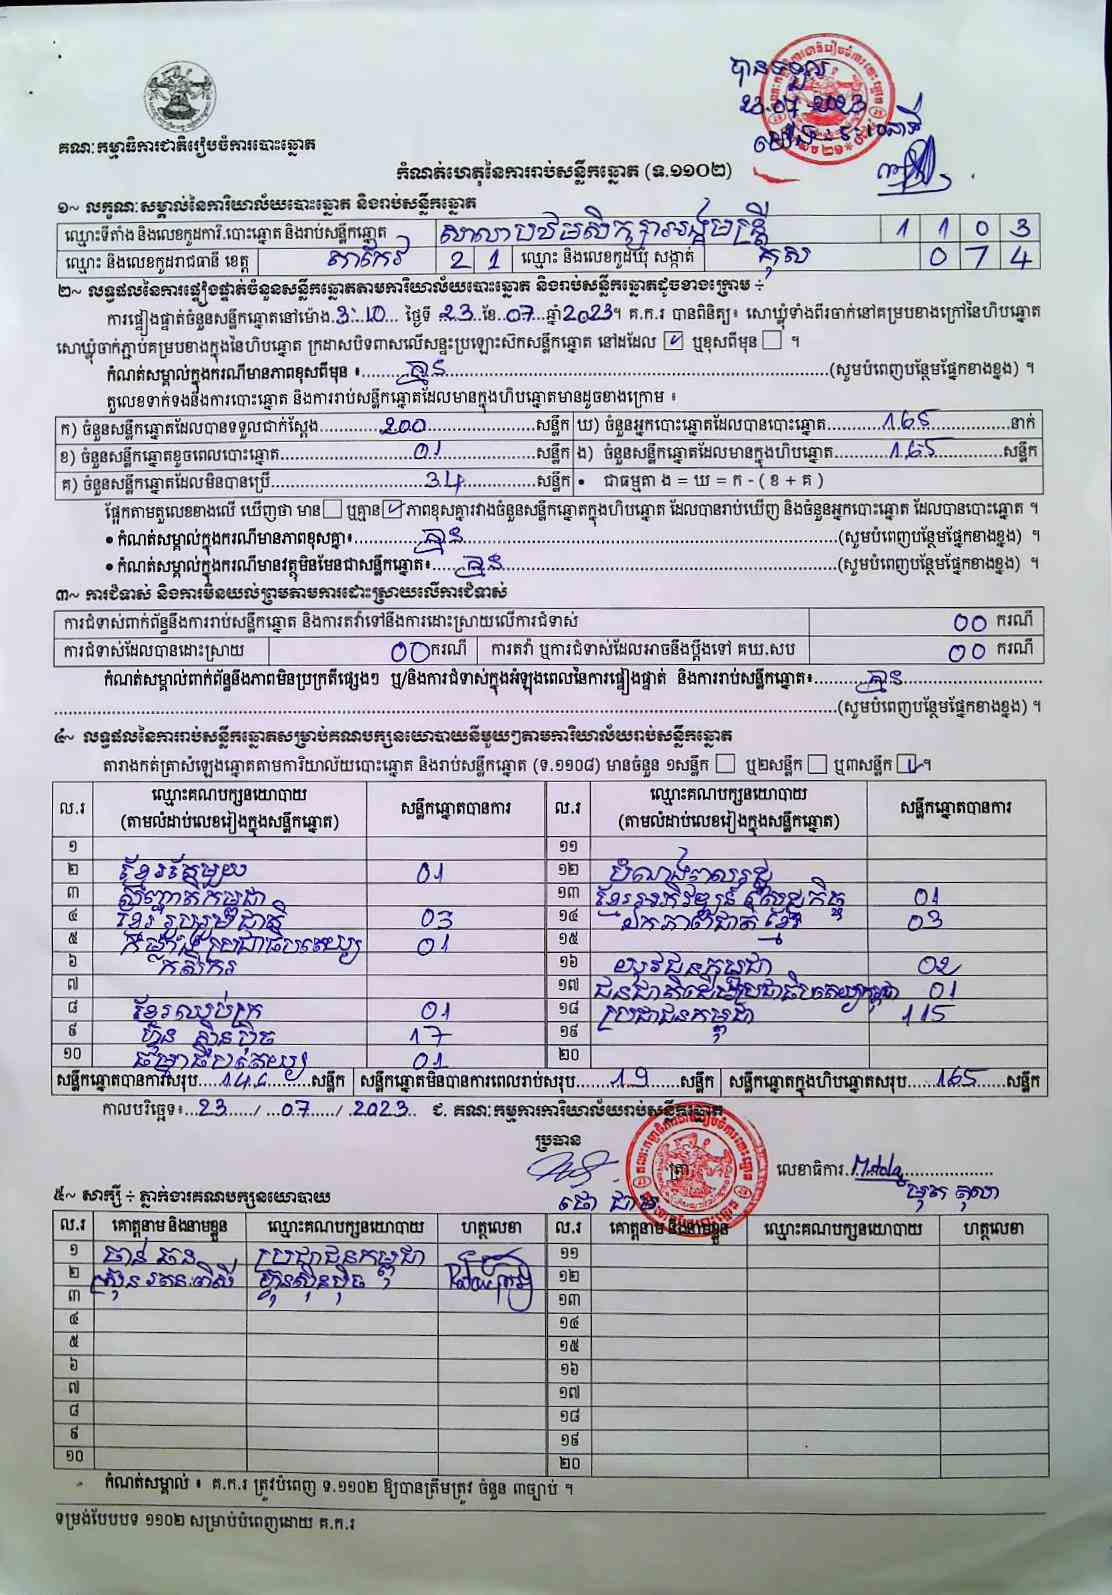 បានទទួល
23.07-2023
គណៈកម្មាធិការជាតិរៀបចំការបោះឆ្នោត
កំណត់ហេតុនៃការរាប់សន្លឹកឆ្នោត (ទ.១១០២)
១~ លក្ខណៈសម្គាល់នៃការិយាល័យបោះឆ្នោត និងរាប់សន្លឹកឆ្នោត
ឈ្មោះទីតាំង និងលេខកូដការិ.បោះឆ្នោត និងរាប់សន្លឹកឆ្នោត សាលាបឋមសិក្សាអង្គមន្ត្រី 1 1 0 3
ឈ្មោះ និងលេខកូដរាជធានី ខេត្ត តាកែវ 2 1 ឈ្មោះ និងលេខកូដឃុំ សង្កាត់ គុស 0 7 4
២~ លទ្ធផលនៃការផ្ទៀងផ្ទាត់ចំនួនសន្លឹកឆ្នោតតាមការិយាល័យបោះឆ្នោត និងរាប់សន្លឹកឆ្នោតដូចខាងក្រោម ÷
ការផ្ទៀងផ្ទាត់ចំនួនសន្លឹកឆ្នោតនៅម៉ោង.3:10.... ថ្ងៃទី .23..ខែ..07...ឆ្នាំ2023។ គ.ក.រ បានពិនិត្យ៖ សោឃ្លុំទាំងពីរចាក់នៅគម្របខាងក្រៅនៃហិបឆ្នោត
សោឃ្លុំចាក់ភ្ជាប់គម្របខាងក្នុងនៃហិបឆ្នោត ក្រដាសបិទពាសលើសន្ទះប្រឡោះស៊កសន្លឹកឆ្នោត នៅដដែល ☑ ឬខុសពីមុន ☐ ។
កំណត់សម្គាល់ក្នុងករណីមានភាពខុសពីមុន ៖.........គ្មាន.........(សូមបំពេញបន្ថែមផ្នែកខាងខ្នង) ។
តួលេខទាក់ទងនឹងការបោះឆ្នោត និងការរាប់សន្លឹកឆ្នោតដែលមានក្នុងហិបឆ្នោតមានដូចខាងក្រោម ៖
ក) ចំនួនសន្លឹកឆ្នោតដែលបានទទួលជាក់ស្តែង.........200.........សន្លឹក ឃ) ចំនួនអ្នកបោះឆ្នោតដែលបានបោះឆ្នោត.........165.........នាក់
ខ) ចំនួនសន្លឹកឆ្នោតខូចពេលបោះឆ្នោត.........01.........សន្លឹក ង) ចំនួនសន្លឹកឆ្នោតដែលមានក្នុងហិបឆ្នោត.........165.........សន្លឹក
គ) ចំនួនសន្លឹកឆ្នោតដែលមិនបានប្រើ.........34.........សន្លឹក • ជាធម្មតា ង = ឃ = ក - ( ខ + គ )
ផ្អែកតាមតួលេខខាងលើ ឃើញថា មាន☐ ឬគ្មាន☑ភាពខុសគ្នារវាងចំនួនសន្លឹកឆ្នោតក្នុងហិបឆ្នោត ដែលបានរាប់ឃើញ និងចំនួនអ្នកបោះឆ្នោត ដែលបានបោះឆ្នោត ។
• កំណត់សម្គាល់ក្នុងករណីមានភាពខុសគ្នា៖.........គ្មាន.........(សូមបំពេញបន្ថែមផ្នែកខាងខ្នង) ។
• កំណត់សម្គាល់ក្នុងករណីមានវត្ថុមិនមែនជាសន្លឹកឆ្នោត៖.........គ្មាន.........(សូមបំពេញបន្ថែមផ្នែកខាងខ្នង) ។
៣~ ការជំទាស់ និងការមិនយល់ព្រមតាមការដោះស្រាយលើការជំទាស់
ការជំទាស់ពាក់ព័ន្ធនឹងការរាប់សន្លឹកឆ្នោត និងការតវ៉ាទៅនឹងការដោះស្រាយលើការជំទាស់ 00 ករណី
ការជំទាស់ដែលបានដោះស្រាយ 00 ករណី ការតវ៉ា ឬការជំទាស់ដែលអាចនឹងប្តឹងទៅ គឃ.សប 00 ករណី
កំណត់សម្គាល់ពាក់ព័ន្ធនឹងភាពមិនប្រក្រតីផ្សេងៗ ឬ/និងការជំទាស់ក្នុងអំឡុងពេលនៃការផ្ទៀងផ្ទាត់ និងការរាប់សន្លឹកឆ្នោត៖.........គ្មាន.........
.........(សូមបំពេញបន្ថែមផ្នែកខាងខ្នង) ។
៤~ លទ្ធផលនៃការរាប់សន្លឹកឆ្នោតសម្រាប់គណបក្សនយោបាយនីមួយៗតាមការិយាល័យរាប់សន្លឹកឆ្នោត
តារាងកត់ត្រាសំឡេងឆ្នោតតាមការិយាល័យបោះឆ្នោត និងរាប់សន្លឹកឆ្នោត (ទ.១១០៨) មានចំនួន ១សន្លឹក ☐ ឬ២សន្លឹក ☐ ឬ៣សន្លឹក ☑។
ល.រ ឈ្មោះគណបក្សនយោបាយ (តាមលំដាប់លេខរៀងក្នុងសន្លឹកឆ្នោត) សន្លឹកឆ្នោតបានការ ល.រ ឈ្មោះគណបក្សនយោបាយ (តាមលំដាប់លេខរៀងក្នុងសន្លឹកឆ្នោត) សន្លឹកឆ្នោតបានការ
១ ១១
២ ខ្មែរតែមួយ 01 ១២ បំណងពលរដ្ឋ
៣ សញ្ជាតិកម្ពុជា ១៣ ខ្មែរអភិវឌ្ឍន៍សេដ្ឋកិច្ច 01
៤ ខ្មែររួបរួមជាតិ 03 ១៤ ឯកភាពជាតិខ្មែរ 03
៥ កម្លាំងប្រជាធិបតេយ្យ 01 ១៥
៦ កសិករ ១៦ យុវជនកម្ពុជា 02
៧ ១៧ ជនជាតិដើមប្រជាធិបតេយ្យកម្ពុជា 01
៨ ខ្មែរឈប់ក្រ 01 ១៨ ប្រជាជនកម្ពុជា 115
៩ ហ្វ៊ុនស៊ិនប៉ិច 17 ១៩
១០ ធម្មាធិបតេយ្យ 01 ២០
សន្លឹកឆ្នោតបានការសរុប.....146.....សន្លឹក សន្លឹកឆ្នោតមិនបានការពេលរាប់សរុប.....19.....សន្លឹក សន្លឹកឆ្នោតក្នុងហិបឆ្នោតសរុប.....165.....សន្លឹក
កាលបរិច្ឆេទ៖...23...../...07...../.2023.. ជ. គណៈកម្មការការិយាល័យរាប់សន្លឹកឆ្នោត
ប្រធាន ត្រា លេខាធិការ
៥~ សាក្សី ÷ ភ្នាក់ងារគណបក្សនយោបាយ
ល.រ គោត្តនាម និងនាមខ្លួន ឈ្មោះគណបក្សនយោបាយ ហត្ថលេខា ល.រ គោត្តនាម និងនាមខ្លួន ឈ្មោះគណបក្សនយោបាយ ហត្ថលេខា
១ ចាន់ ឆន ប្រជាជនកម្ពុជា ១១
២ ហ្វ៊ុនស៊ិនប៉ិច ១២
៣ ១៣
៤ ១៤
៥ ១៥
៦ ១៦
៧ ១៧
៨ ១៨
៩ ១៩
១០ ២០
កំណត់សម្គាល់ ៖ គ.ក.រ ត្រូវបំពេញ ទ.១១០២ ឱ្យបានត្រឹមត្រូវ ចំនួន ៣ច្បាប់ ។
ទម្រង់បែបបទ ១១០២ សម្រាប់បំពេញដោយ គ.ក.រ